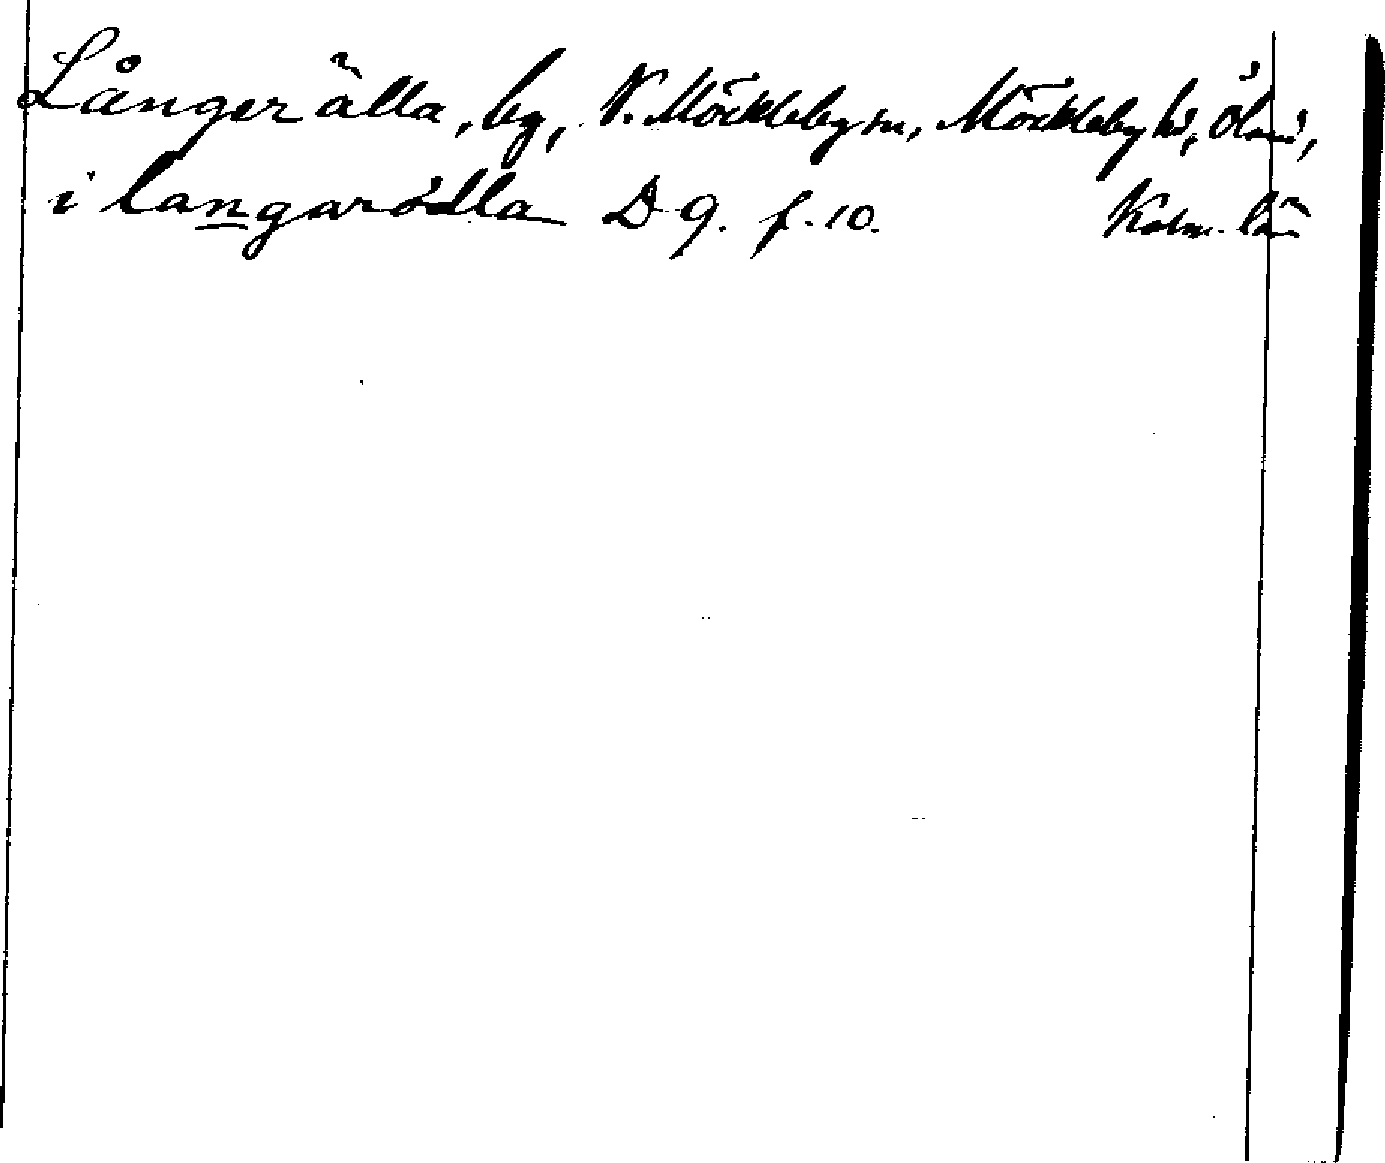 Långerälla, by, N. Möckleby sn, Möckleby hd, Öland,
i langarödla D 9. f. 10. Kalm. län